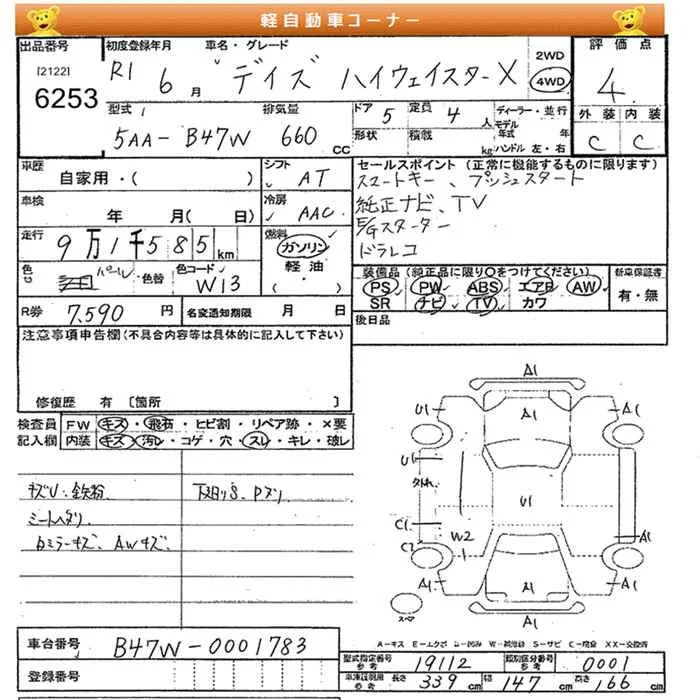 軽自動車コーナー
出品番号
[2122]
6253
初度登録年月
R1 6月
車名・グレード
デイズ ハイウェイスターX
2WD
4WD
評価点
4
型式
5AA-B47W
排気量
660cc
ドア
5
形状
定員
4人
積載
kg
ディーラー・並行
モデル年式 年
ハンドル 左・右
外装 内装
C C
車歴
自家用・( )
シフト
AT
車検
年 月(日)
冷房
AAC
走行
9万1千585km
燃料
ガソリン
軽油
色
パール
色替
色コード
W13
R券
7.590円
名変通知期限 月 日
セールスポイント (正常に機能するものに限ります)
スマートキー、プッシュスタート
純正ナビ、TV
E/Gスターター
ドラレコ
装備品(純正品に限り○をつけてください)
PS PW ABS エアB AW
SR ナビ TV カワ
新車保証書
有・無
後日品
注意事項申告欄(不具合内容等は具体的に記入して下さい)
修復歴 有〔箇所 〕
検査員記入欄
FW キズ・飛石・ヒビ割・リペア跡・×要
内装 キズ・汚レ・コゲ・穴・スレ・キレ・破レ
キズU・鉄粉
シートヘタリ
ミラーキズ、AWキズ、
下廻りS
A1
U1 A1 A1
U1
U1
C1
C2
W2
A1
A1 A1 A1
A1
スペア
A-キズ E-エクボ U-凹み W-補修跡 S-サビ C-腐蝕 XX-交換済
車台番号
B47W-0001783
登録番号
型式指定番号
参考
19112
類別区分番号
参考
0001
車検証記載
参考
長さ 339cm 幅 147cm 高さ 166cm